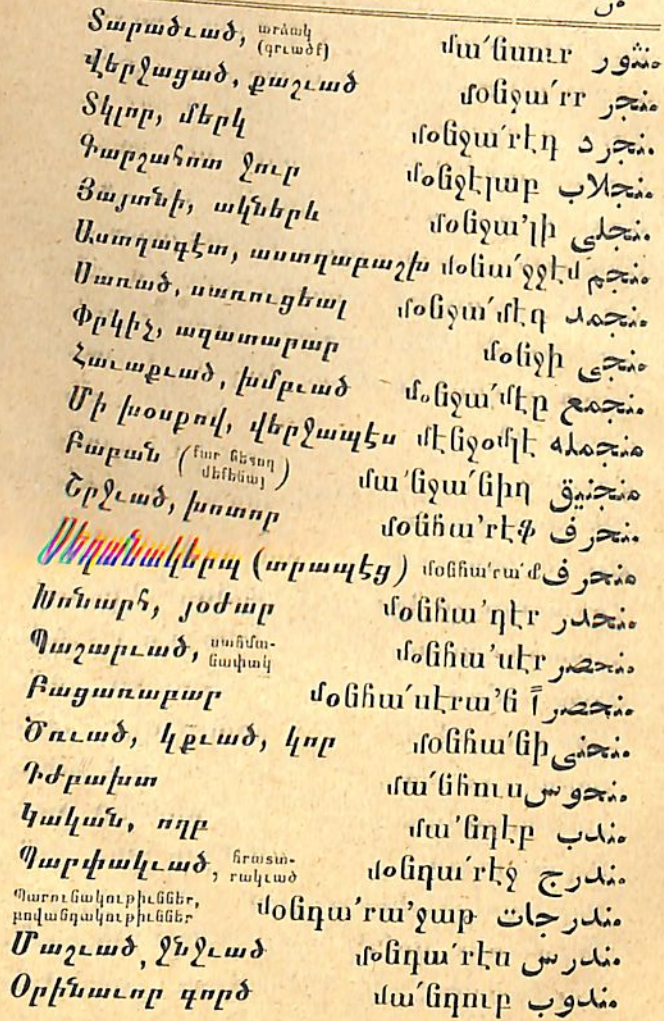 Տարածւած, արձակ (գրւածք) մա՛նսուր منثور
վերջացած, քաշւած մօնջա՛րր منجر
Տկլոր, մերկ մօնջա՛րէդ منجرد
Գարշահոտ ջուր մօնջէլաբ منجلاب
Յայտնի, ակներև մօնջա՛լի منجلی
Աստղագէտ, աստղաբաշխ մօնա՛ջջէմ منجم
Սառած, սառուցեալ մօնջա՛մէդ منجمد
Փրկիչ, ազատարար մօնջի منجی
Հաւաքւած, խմբւած մօնջա՛մէը منجمع
Մի խօսքով, վերջապէս մէնջօմլէ منجمله
Բաբան (քար նետող մեքենայ) մա՛նջա՛նիղ منجنیق
Շրջւած, խոտոր մօնհա՛րէֆ منحرف
Սեղանակերպ (տրապէց) մօնհա՛րա՛ֆ منحرف
Խոնարհ, յօժար մօնհա՛դէր منحدر
Պաշարւած, սահմանափակ մօնհա՛սէր منحصر
Բացառաբար մօնհա՛սէրա՛ն منحصر آ
Ծռւած, կքւած, կոր մօնհա՛նի منحنی
Դժբախտ մա՛նհուս منحوس
Կական, ողբ մա՛նդէբ مندب
Պարփակւած, հրատարակւած մօնդա՛րէջ مندرج
Պարունակութիւններ, բովանդակութիւններ մօնդա՛րա՛ջաթ مندرجات
Մաշւած, ջնջւած մօնդա՛րէս مندرس
Օրինաւոր գործ մա՛նդուբ مندوب